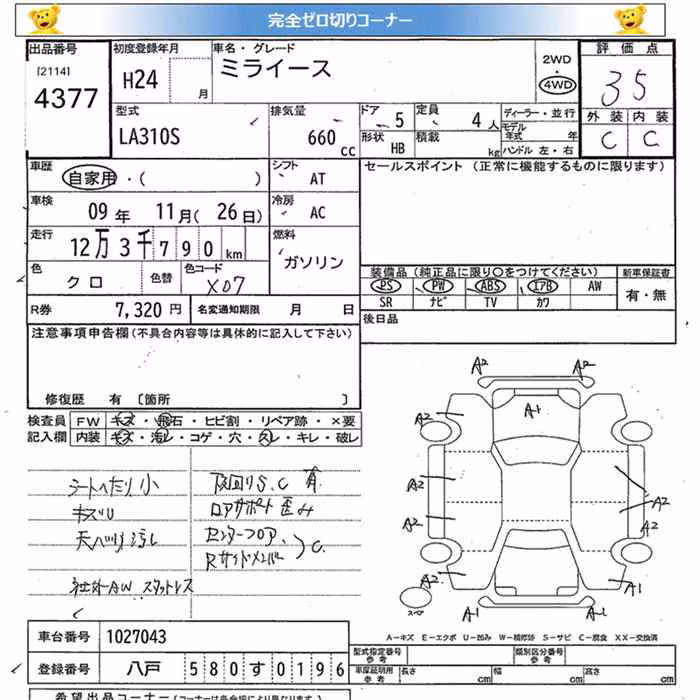 完全ゼロ切りコーナー
出品番号 初度登録年月 車名・グレード 評価点
[2114]
4377 H24 月 ミライース 2WD 4WD 35
型式 排気量 ドア 定員 ディーラー・並行 外装 内装
LA310S 660cc 5 4人 モデル年式 年 C C
形状 HB 積載 kg ハンドル 左・右
車歴 自家用・( ) シフト AT セールスポイント (正常に機能するものに限ります)
車検 09年 11月(26日) 冷房 AC
走行 12万3千790km 燃料 ガソリン
色 クロ 色替 色コード X07
装備品(純正品に限り〇をつけてください) 新車保証書
PS PW ABS エアB AW 有・無
SR ナビ TV カワ
R券 7,320円 名変通知期限 月 日
後日品
注意事項申告欄(不具合内容等は具体的に記入して下さい)
修復歴 有 〔箇所 〕
検査員 FW キズ・飛石・ヒビ割・リペア跡・×要
記入欄 内装 キズ・汚レ・コゲ・穴・スレ・キレ・破レ
シートへたり小
キズU
社外AW スタットレス
下回りS.C 有
ロアサポート 歪み
センターフロア
Rサイドメンバー 〉C
A2 A2
A2 A1
A2
A2 A2
A2
A2 A1
スペア A1 A1
A−キズ E−エクボ U−凹み W−補修跡 S−サビ C−腐食 XX−交換済
車台番号 1027043
型式指定番号 参考 類別区分番号 参考
登録番号 八戸 580す0196
車庫証明用 参考 長さ cm 幅 cm 高さ cm
希望出品コーナー